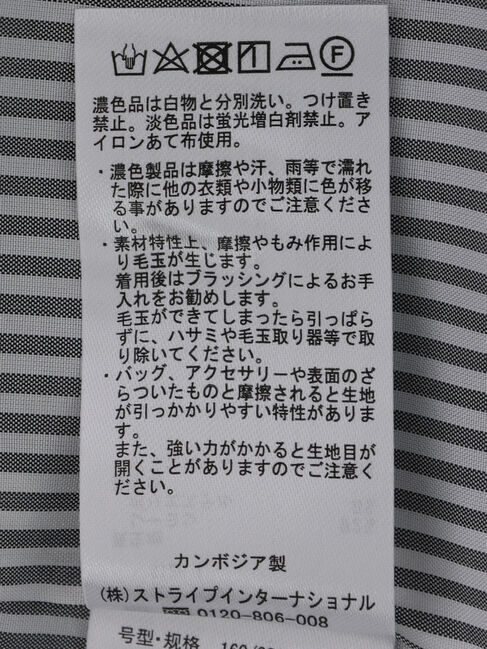 F
濃色品は白物と分別洗い。つけ置き
禁止。淡色品は蛍光増白剤禁止。ア
イロンあて布使用。
・濃色製品は摩擦や汗、雨等で濡れ
た際に他の衣類や小物類に色が移
る事がありますのでご注意くださ
い。
・素材特性上、摩擦やもみ作用によ
り毛玉が生じます。
着用後はブラッシングによるお手
入れをお勧めします。
毛玉ができてしまったら引っぱら
ずに、ハサミや毛玉取り器等で取
り除いてください。
・バッグ、アクセサリーや表面のざ
らついたものと摩擦されると生地
が引っかかりやすい特性がありま
す。
また、強い力がかかると生地目が
開くことがありますのでご注意く
ださい。
カンボジア製
(株)ストライプインターナショナル
0120-806-008
号型・规格